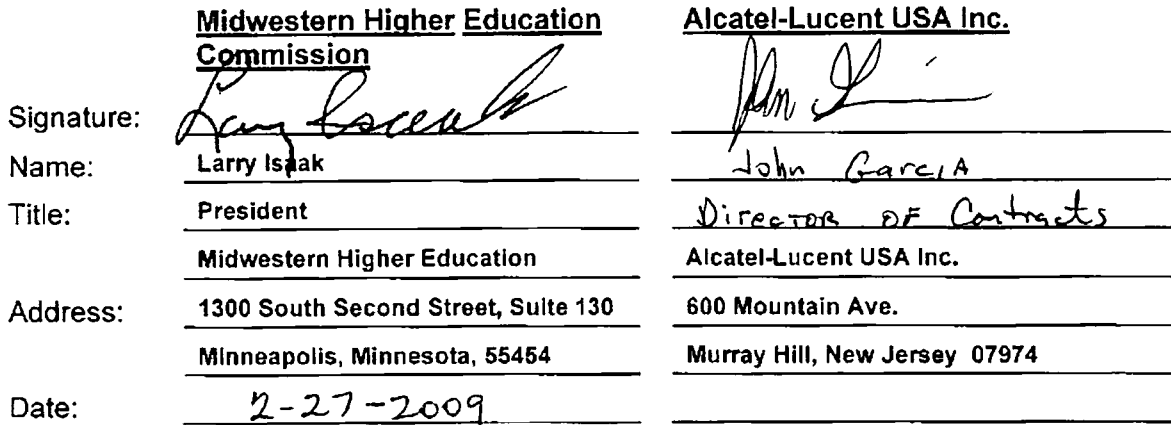 Midwestern Higher Education Alcatel-Lucent USA Inc.
Commission
Signature: Larry Isaak John
Name: Larry Isaak John Garcia
Title: President Director of Contracts
Midwestern Higher Education Alcatel-Lucent USA Inc.
Address: 1300 South Second Street, Suite 130 600 Mountain Ave.
Minneapolis, Minnesota, 55454 Murray Hill, New Jersey 07974
Date: 2-27-2009